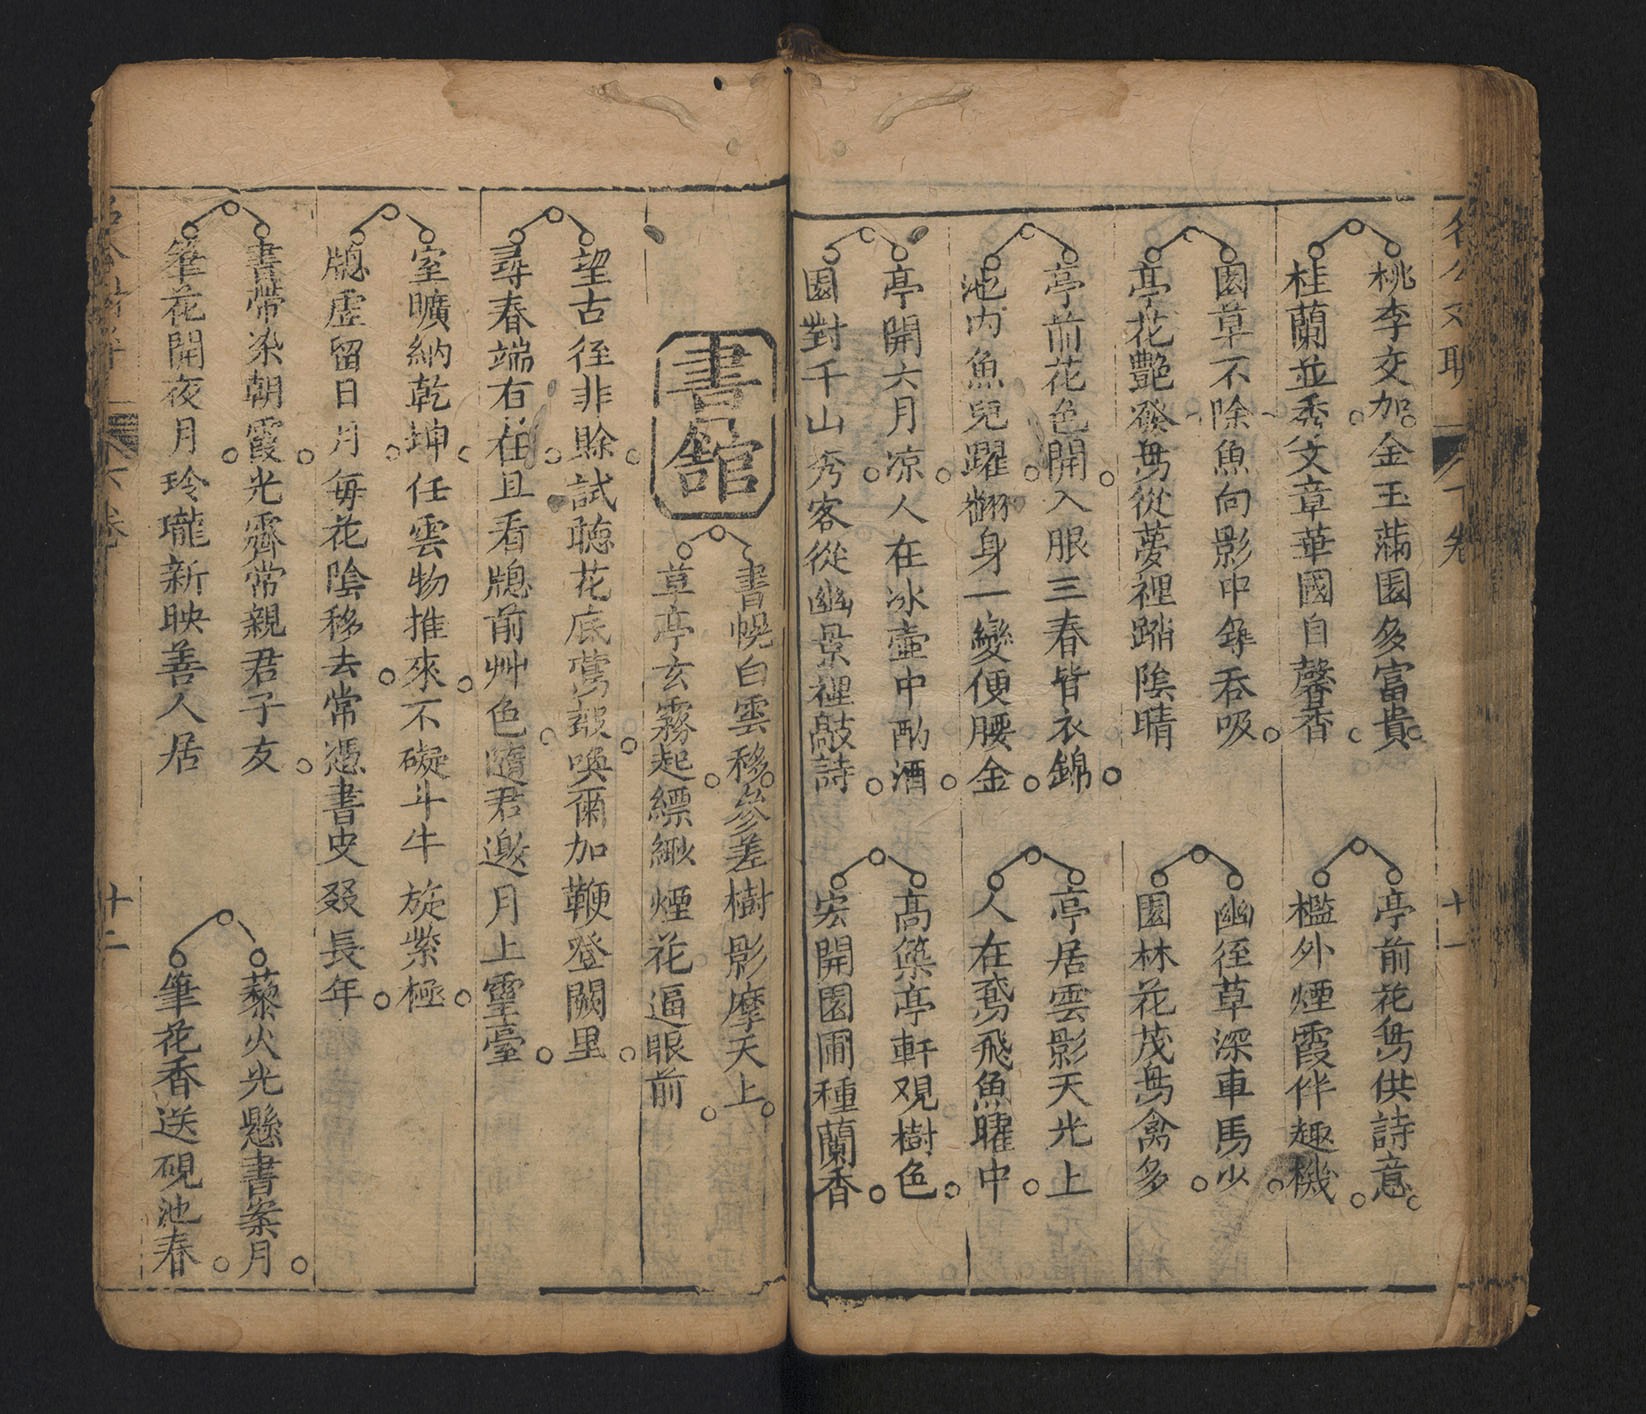 桃李交加金玉滿園多富貴
桂蘭並秀文章華國自馨香
亭前花鳥供詩意
檻外煙霞伴趣機
園草不除魚向影中錯吞吸
亭花艷發鳥從夢裡蹋陰晴
幽徑草深車馬少
園林花茂鳥禽多
亭前花色開入服三春皆衣錦
池內魚兒躍翻身一變便腰金
亭居雲影天光上
人在鳶飛魚躍中
亭開六月凉人在冰壺中酌酒
園對千山秀客從幽景裡敲詩
高築亭軒观樹色
宏開園圃種蘭香
書舘
書幌白雲移參差樹影摩天上
草亭玄霧起縹緲煙花逼眼前
望古徑非賒試聽花底鶯聲喚爾加鞭登闕里
尋春端有在且看牕前艸色隨君邀月上靈臺
室曠納乾坤任雲物推來不礙斗牛旋紫極
牕虛留日月每花陰移去常憑書史叕長年
書帶染朝霞光霽常親君子友
筆花開夜月玲瓏新映善人居
藜火光懸書案月
筆花香送硯池春
十一
十二